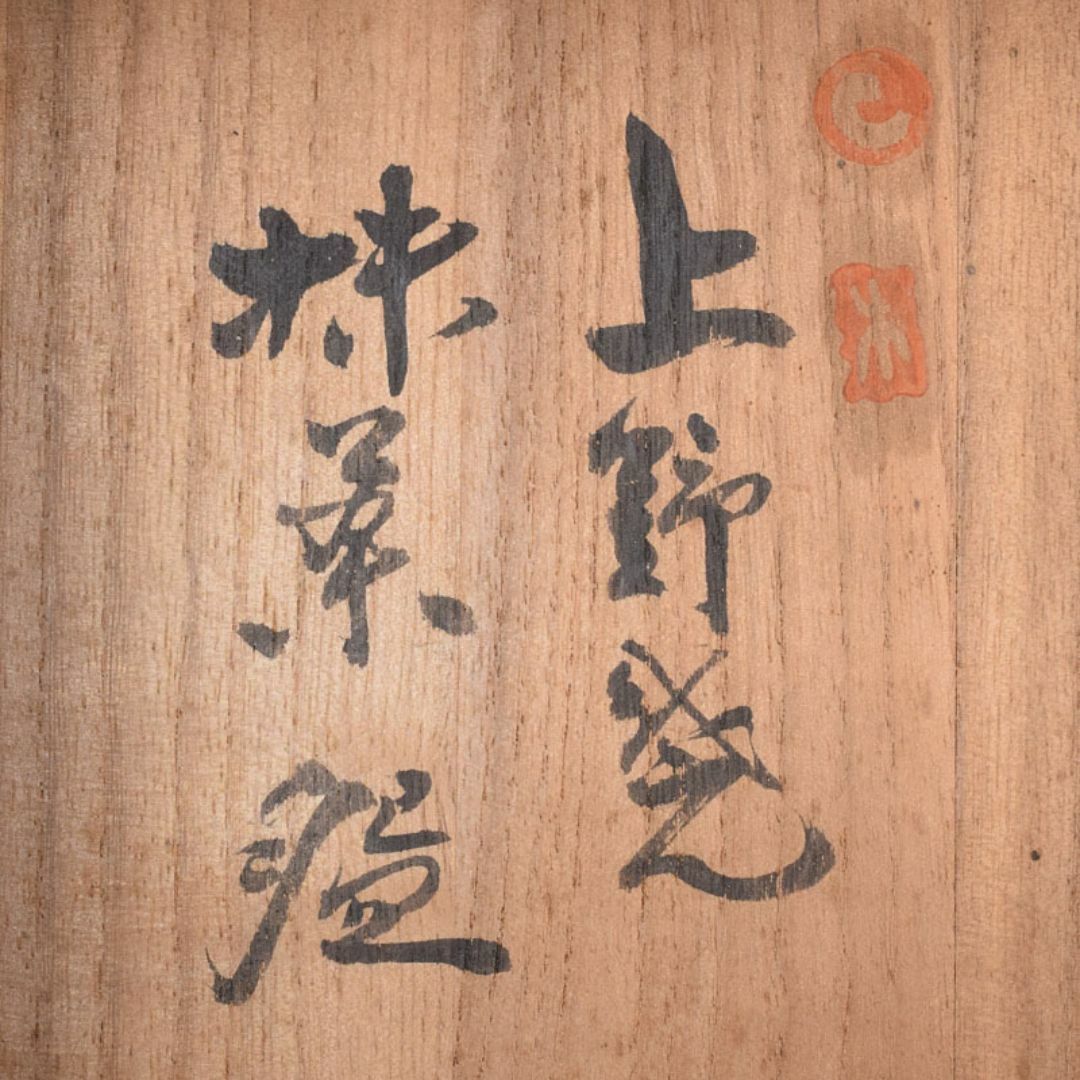 上野焼
抹茶盌